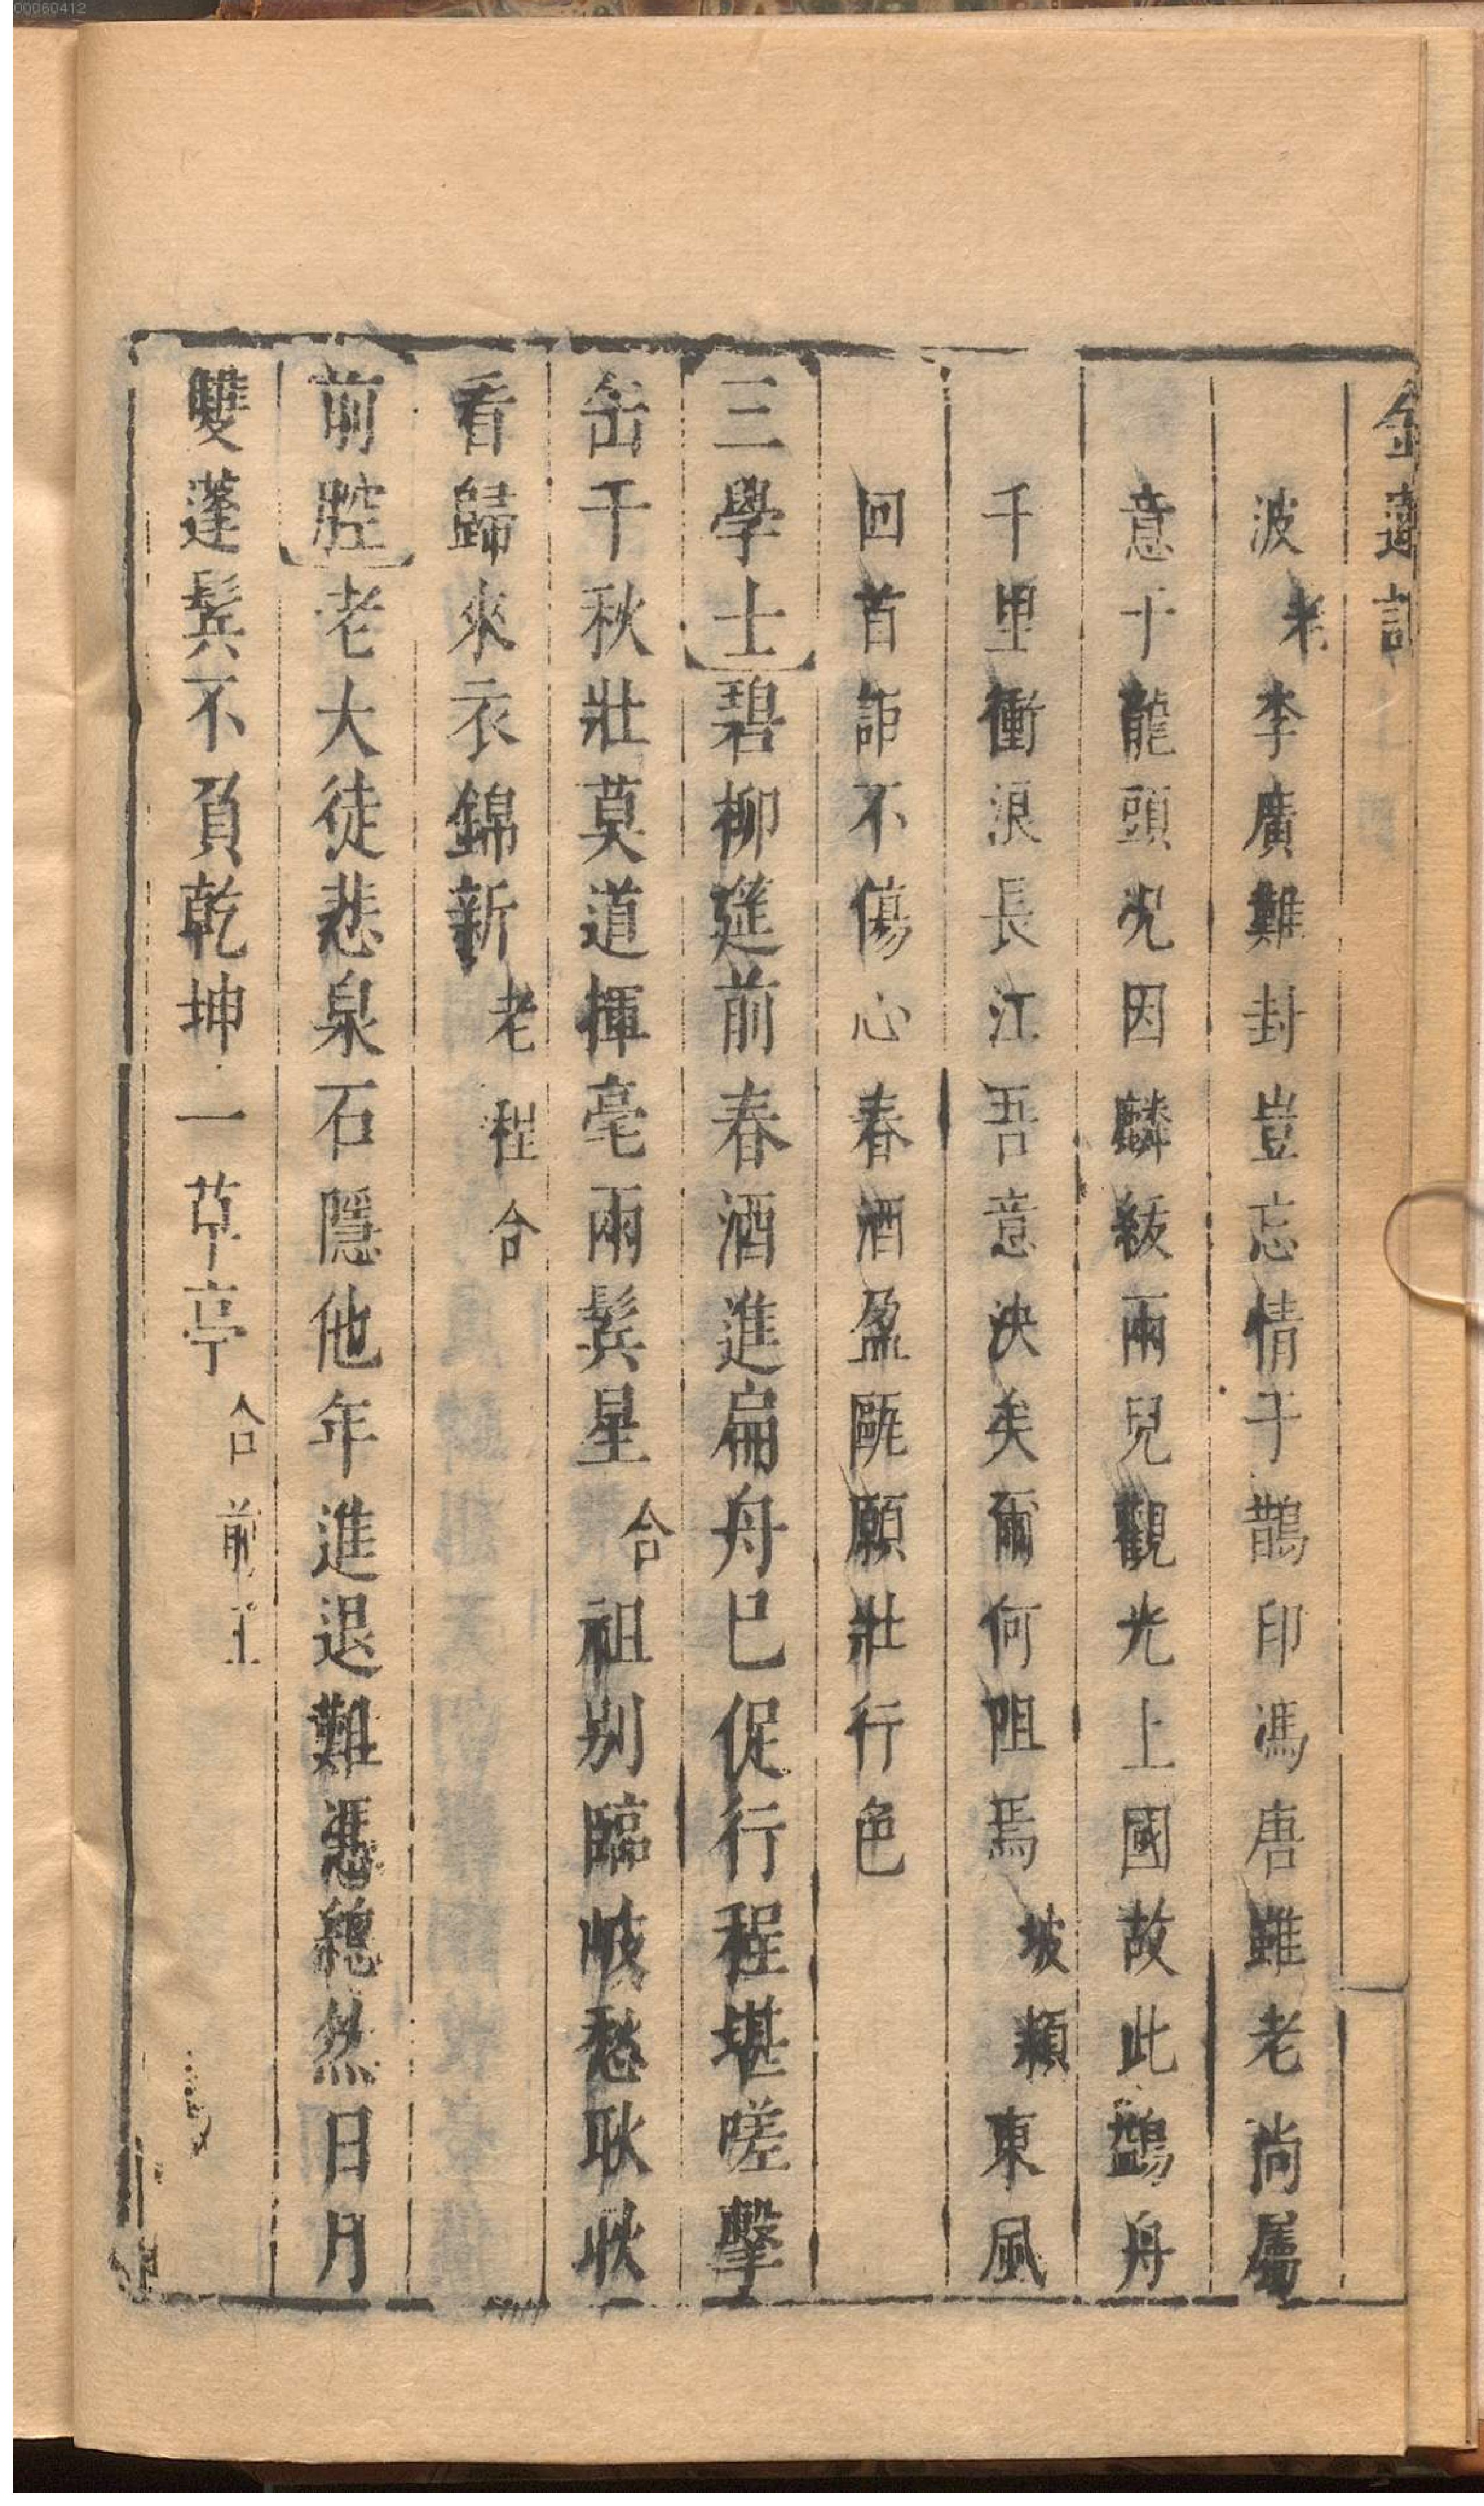 00060412
金蓮記
波老李廣難封豈忘情于鵲印馮唐雖老尚屬
意于龍頭况因麟紱兩兒觀光上國故此鷁舟
千里衝浪長江吾意決矣爾何阻焉坡頼東風
回首詎不傷心春酒盈甌願壯行色
三學士碧柳筵前春酒進扁舟已促行程堪嗟擊
缶千秋壯莫道揮毫兩鬂星合祖別臨岐愁耿耿
看歸來衣錦新老程合
前腔老大徒悲泉石隱他年進退難憑總然日月
雙蓬鬂不負乾坤一草亭合前